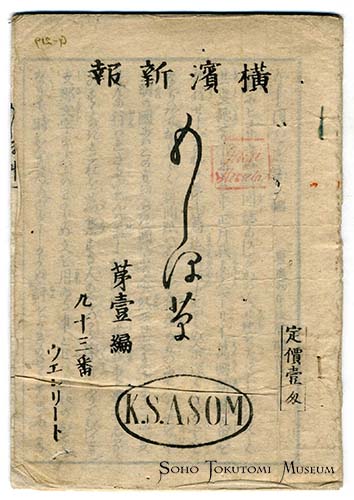 横濱新報
もしほ草
第壹編
九十三番
ウエンリート
定價壹匁
K.S.ASOM
SOHO TOKUTOMI MUSEUM